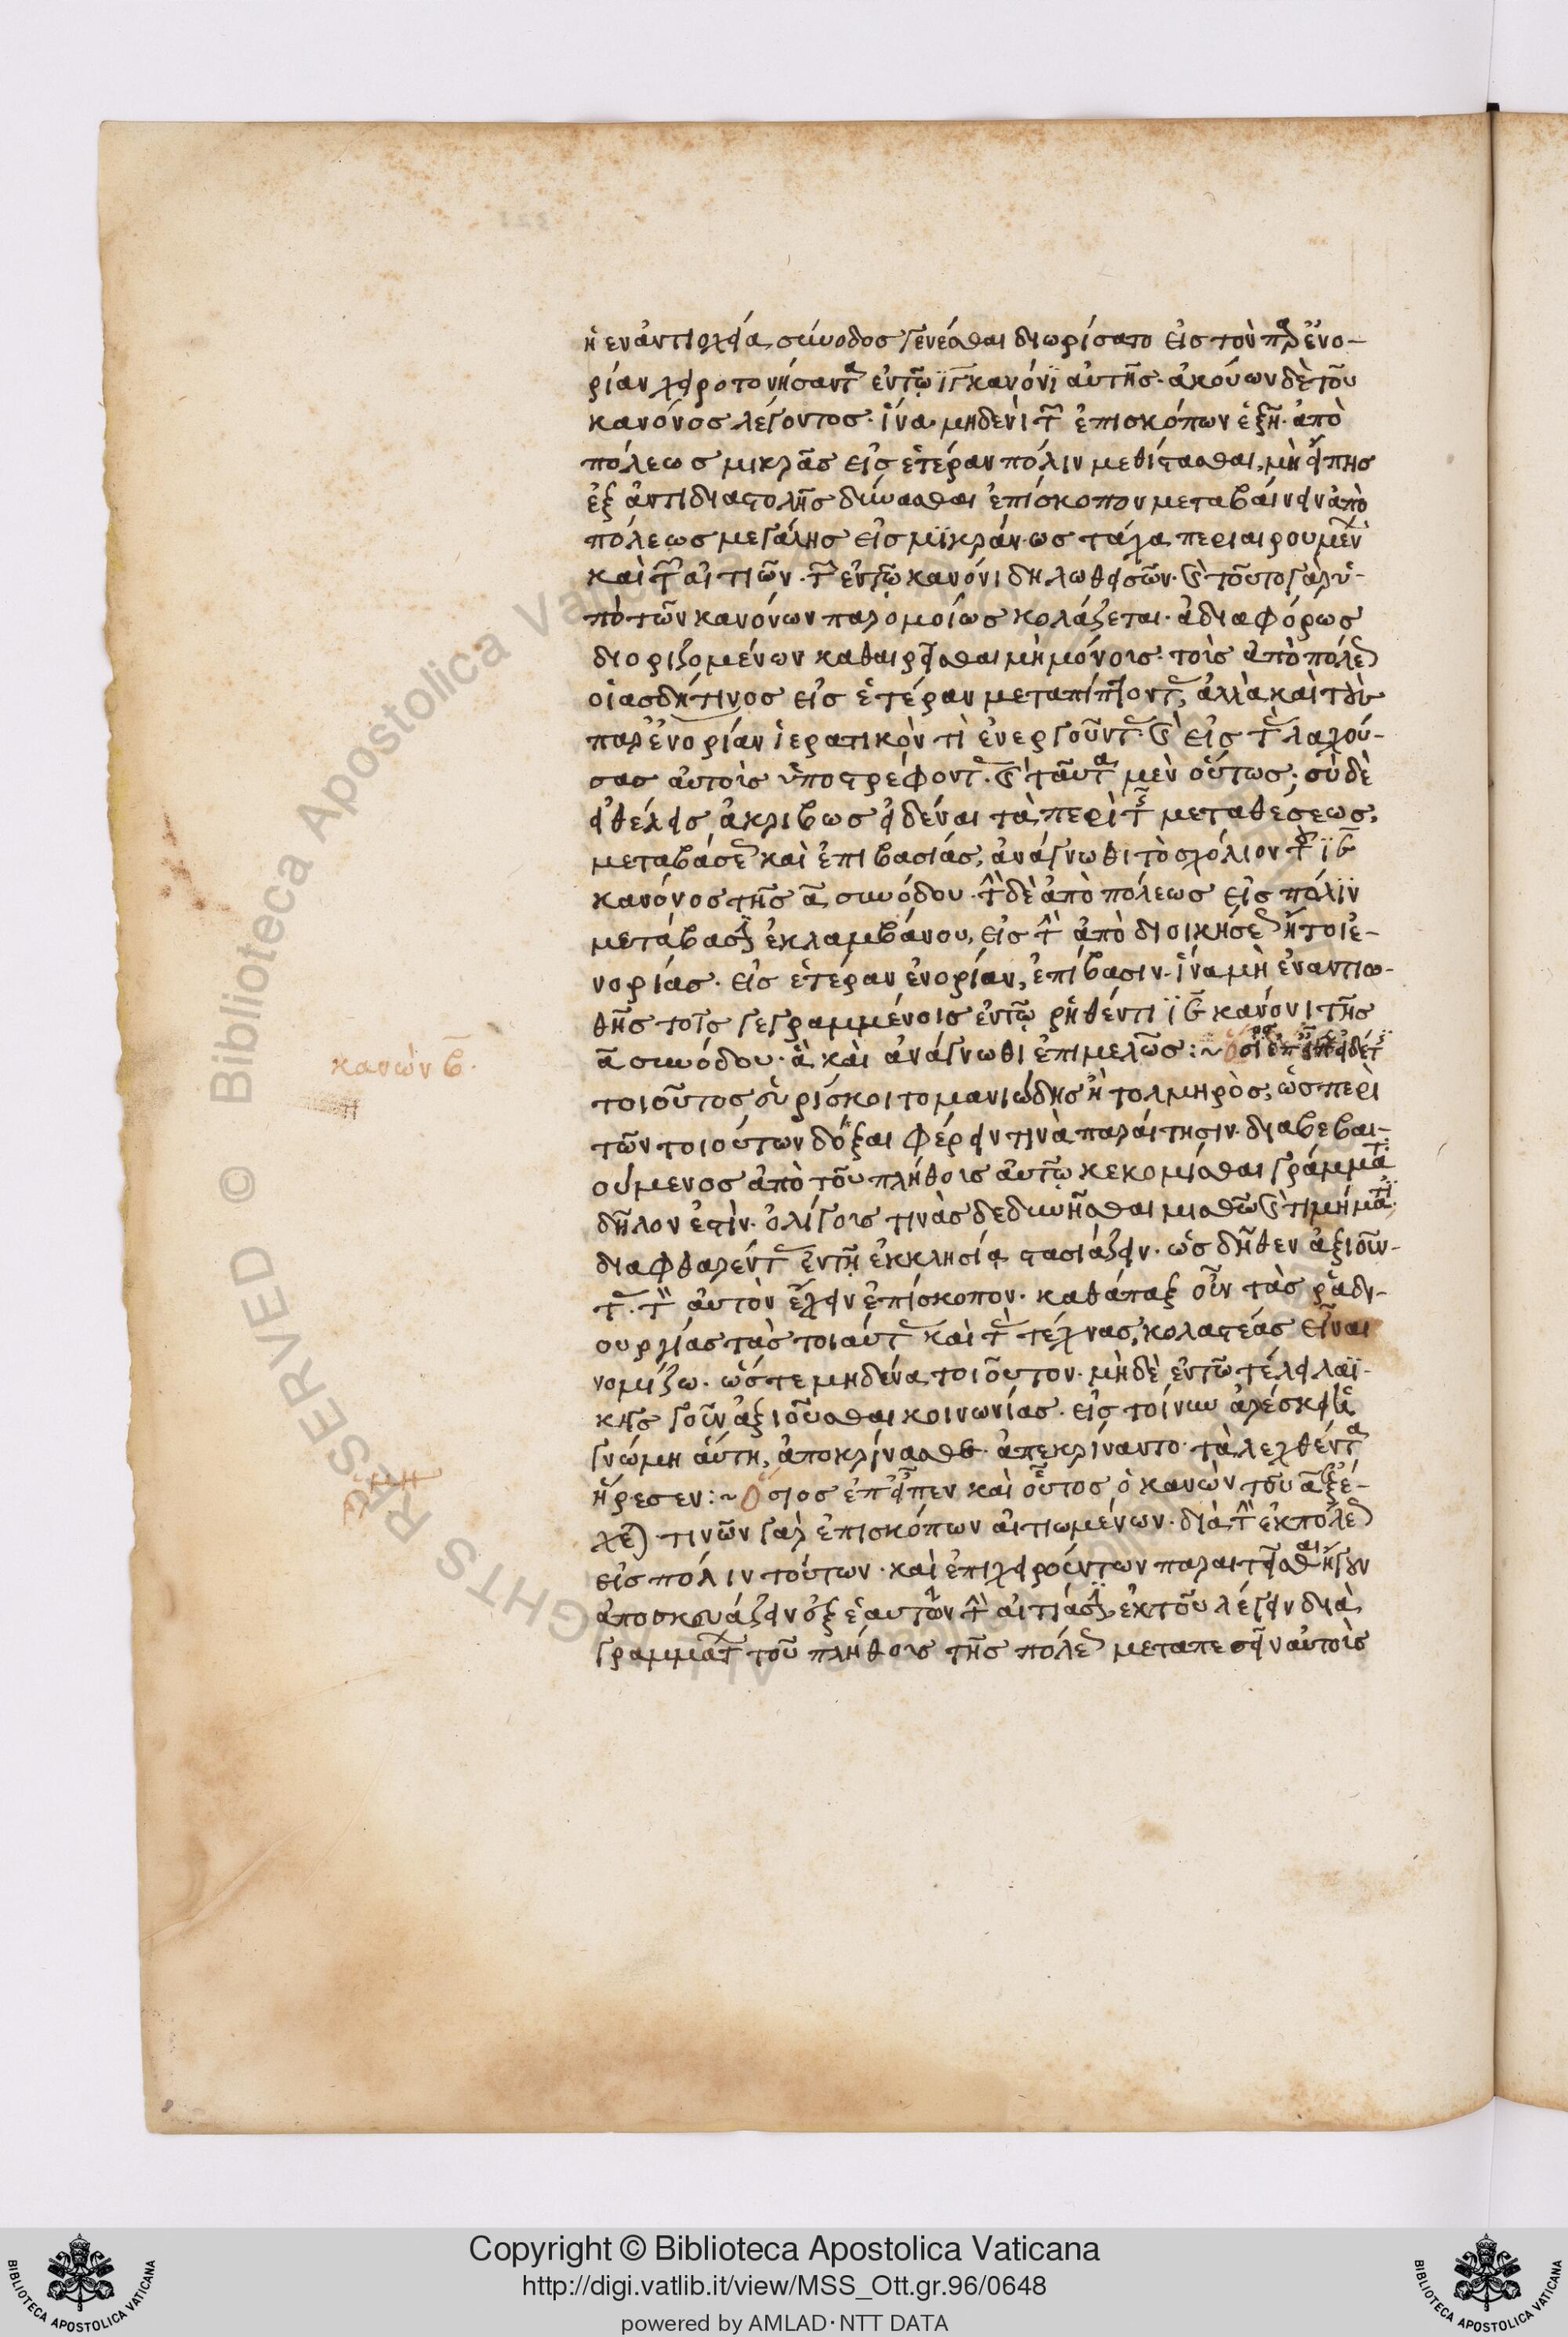 ἡ ἐν ἀντιοχεία σύνοδος γενέσθαι διωρίσατο εἰς τὸν παρ ἐνο-
ρίαν χειροτονήσαντα ἐν τῶ ιγ κανόνι αὐτῆς. ἀκούων δὲ τοῦ
κανόνος λέγοντος. ἵνα μηδενὶ τῶν ἐπισκόπων ἐξῆ. ἀπὸ
πόλεως μικρᾶς εἰς ἑτέραν πόλιν μεθίστασθαι, μὴ εἴπης
ἐξ ἀντιδιαστολῆς δύνασθαι ἐπίσκοπον μεταβαίνειν ἀπὸ
πόλεως μεγάλης εἰς μικράν. ὡς τάχα περιαιρουμένων
καὶ τῶν αἰτιῶν. τῶν ἐν τῶ κανόνι δηλωθεισῶν. καὶ τοῦτο γὰρ ὑ-
πὸ τῶν κανόνων παρομοίως κολάζεται. ἀδιαφόρως
διοριζομένων καθαιρεῖσθαι μὴ μόνους. τοὺς ἀπὸ πόλεως
οἱασδήτινος εἰς ἑτέραν μεταπίπτοντας, ἀλλὰ καὶ τοὺς
παρ ἐνορίαν ἱερατικόν τι ἐνεργοῦντας καὶ εἰς τὰς λαχού-
σας αὐτοὺς ὑποστρέφοντας. καὶ ταῦτα μὲν οὕτως. σὺ δὲ
εἰ θέλεις ἀκριβῶς εἰδέναι τὰ περὶ τῆς μεταθέσεως,
μεταβάσεως καὶ ἐπιβασίας, ἀνάγνωθι τὸ σχόλιον τοῦ ις
κανόνος τῆς α συνόδου. τὴν δὲ ἀπὸ πόλεως εἰς πόλιν
μετάβασιν ἐκλαμβάνου, εἰς τὴν ἀπὸ διοικήσεως ἤτοι ἐ-
νορίας. εἰς ἑτέραν ἐνορίαν, ἐπίβασιν. ἵνα μὴ ἐναντιω-
θῆς τοῖς γεγραμμένοις ἐν τῶ ῥηθέντι ις κανόνι τῆς
κανὼν β.
α συνόδου. ἃ καὶ ἀνάγνωθι ἐπιμελῶς:~
τοιοῦτος εὑρίσκοιτο μανιώδης ἢ τολμηρὸς, ὡς περὶ
τῶν τοιούτων δόξαι φέρειν τινὰ παραίτησιν. διαβεβαι-
ούμενος ἀπὸ τοῦ πλήθους αὐτῶ κεκομίσθαι γράμματα
δῆλον ἐστὶν. ὀλίγους τινὰς δεδυνῆσθαι μισθῶ καὶ τιμήματι
διαφθαρέντας ἐν τῆ ἐκκλησία στασιάζειν. ὡς δῆθεν ἀξιοῦν-
τας. τὸν αὐτὸν ἔχειν ἐπίσκοπον. καθάπαξ οὖν τὰς ῥαδι-
ουργίας τὰς τοιαύτας καὶ τὰς τέχνας, κολαστέας εἶναι
νομίζω. ὥστε μηδένα τοιοῦτον. μὴ δὲ ἐν τῶ τέλει λαϊ-
κῆς γοῦν ἀξιοῦσθαι κοινωνίας. εἰς τοίνυν ἀρέσκει ἡ
γνώμη αὕτη, ἀποκρίνασθε. ἀπεκρίναντο. τὰ λεχθέντα
ἤρεσεν:~ ὅσιος ἐπ εἶπεν καὶ οὗτος ὁ κανὼν τοῦ α ἐξέ-
χεται. τινῶν γὰρ ἐπισκόπων αἰτιωμένων. διὰ τὴν ἐκ πόλεως
εἰς πόλιν τούτων. καὶ ἐπιχειρούντων παραιτεῖσθαι ἤγουν
ἀποσκευάζειν ἐξ ἑαυτῶν τὴν αἰτίασιν, ἐκ τοῦ λέγειν διὰ
γραμμάτων τοῦ πλήθους τῆς πόλεως μεταπεσεῖν αὐτοὺς
Copyright © Biblioteca Apostolica Vaticana
http://digi.vatlib.it/view/MSS_Ott.gr.96/0648
powered by AMLAD·NTT DATA